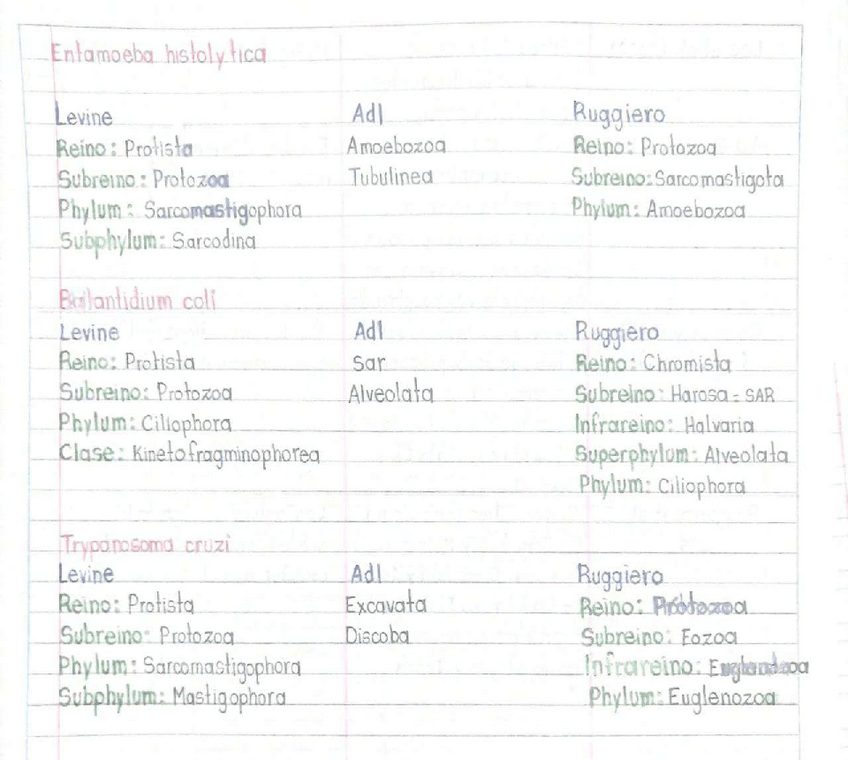 Entamoeba histolytica
Levine Adl Ruggiero
Reino: Protista Amoebozoa Reino: Protozoa
Subreino: Protozoa Tubulinea Subreino: Sarcomastigota
Phylum: Sarcomastigophora Phylum: Amoebozoa
Subphylum: Sarcodina
Balantidium coli
Levine Adl Ruggiero
Reino: Protista Sar Reino: Chromista
Subreino: Protozoa Alveolata Subreino: Harosa = SAR
Phylum: Ciliophora Infrareino: Halvaria
Clase: Kinetofragminophorea Superphylum: Alveolata
Phylum: Ciliophora
Trypanosoma cruzi
Levine Adl Ruggiero
Reino: Protista Excavata Reino: Protozoa
Subreino: Protozoa Discoba Subreino: Eozoa
Phylum: Sarcomastigophora Infrareino: Euglenozoa
Subphylum: Mastigophora Phylum: Euglenozoa